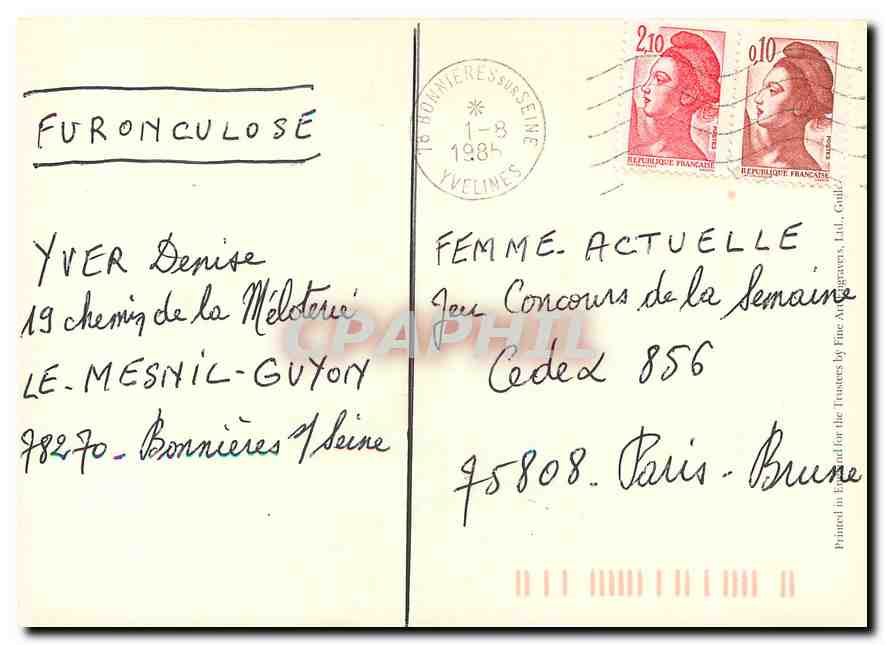 FURONCULOSE
YVER Denise
19 chemin de la Méloterie
LE-MESNIL-GUYON
78270- Bonnières s/ Seine
18 BONNIERES SUR SEINE
*
1-8
1985
YVELINES
2,10
POSTES
REPUBLIQUE FRANÇAISE
0,10
POSTES
REPUBLIQUE FRANÇAISE
FEMME-ACTUELLE
Jeu Concours de la Semaine
Cedex 856
75808- Paris-Brune
Printed in England for the Trustees by Fine Art Engravers, Ltd.,
CPAPHIL